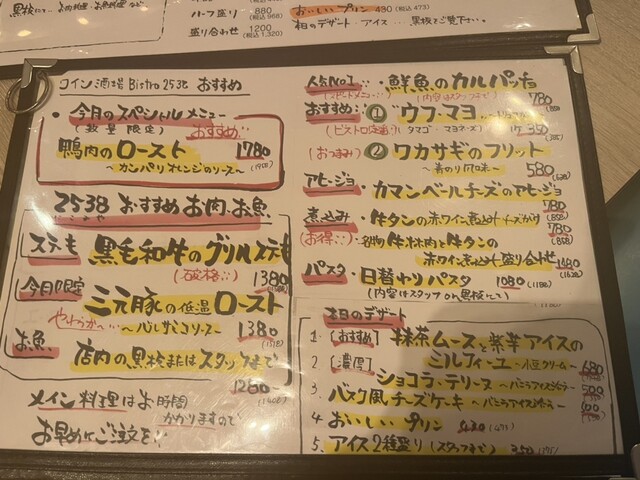 ハーフ盛り 880 (税込968)
盛り合わせ 1200 (税込1,320)
おいしいプリン 430 (税込473)
コイン酒場 Bistro 2538 おすすめ
・今月のスペシャルメニュー
(数量限定) おすすめ
鴨肉のロースト 1780
〜カンパリオレンジのソース〜
2538 おすすめお肉、お魚
ステーキ 黒毛和牛のグリルステーキ
(破格) 1380
今月限定 三元豚の低温ロースト
やわらか〜 〜バルサミコソース〜 1380
お魚 店内の黒板またはスタッフまで
1280
メイン料理はお時間
かかりますので
お早めにご注文を
人気No1 ・鮮魚のカルパッチョ
(スピードメニュー) (内容はスタッフまで) 780
おすすめ ① ウフ・マヨ
(ビストロ定番) タマゴ マヨネーズ 350
(おつまみ) ② ワカサギのフリット
〜青のり風味〜 580
アヒージョ ・カマンベールチーズのアヒージョ
780 (858)
煮込み ・牛タンの赤ワイン煮込み チーズがけ
780 (858)
(お得) ・名物牛ホホ肉と牛タンの
赤ワイン煮込み盛り合わせ 1480
パスタ ・日替わりパスタ 1080 (1188)
(内容はスタッフor黒板にて)
本日のデザート
1. [おすすめ] 抹茶ムースと紫芋アイスの
ミルフィーユ 〜小豆クリーム〜
2. [濃厚] ショコラ・テリーヌ 〜バニラアイス添え〜
3. バスク風チーズケーキ 〜バニラアイス添え〜
4. おいしいプリン 430 (473)
5. アイス2種盛り (スタッフまで) 350